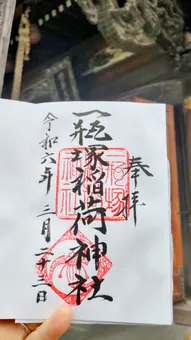 奉拝
一瓶塚稲荷神社
令和六年三月二十二日